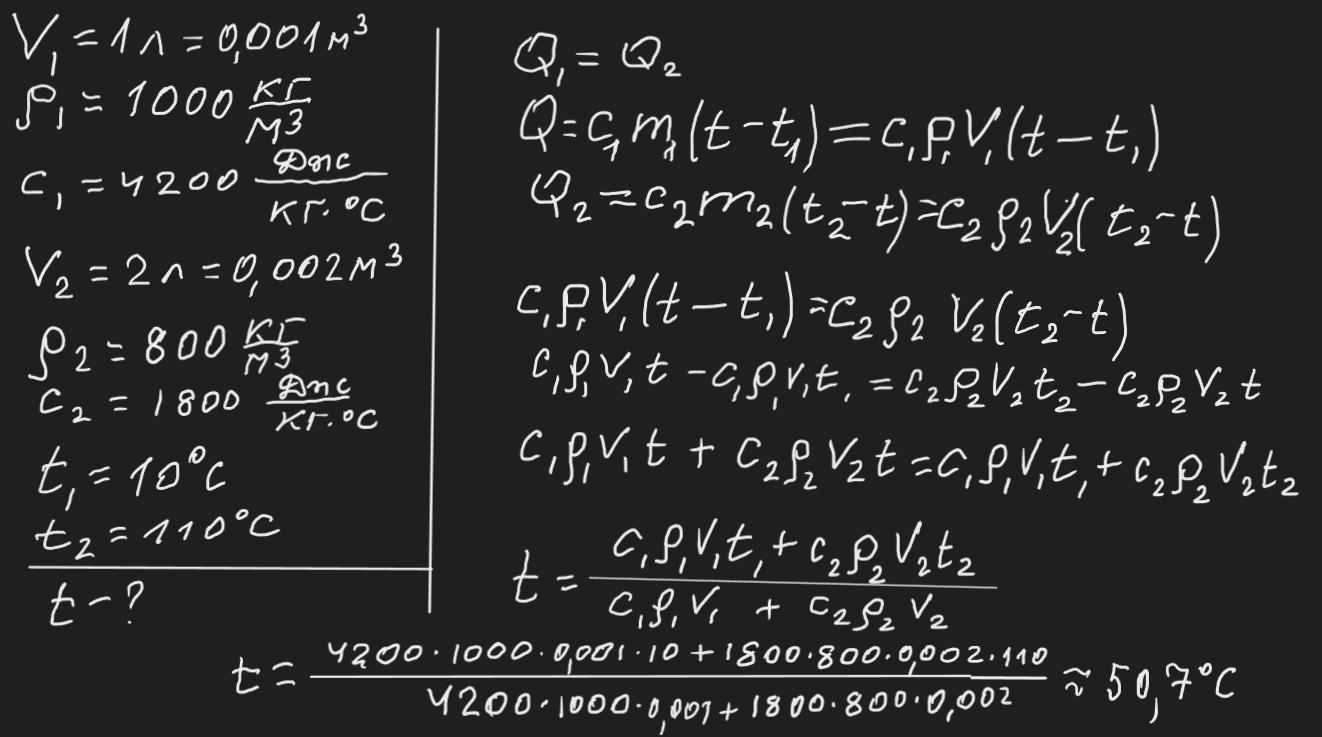 V₁ = 1 л = 0,001 м³
ρ₁ = 1000 кг/м³
c₁ = 4200 Дж/кг·°C
V₂ = 2 л = 0,002 м³
ρ₂ = 800 кг/м³
c₂ = 1800 Дж/кг·°C
t₁ = 10°C
t₂ = 110°C
t – ?
Q₁ = Q₂
Q = c₁m₁(t – t₁) = c₁ρ₁V₁(t – t₁)
Q₂ = c₂m₂(t₂ – t) = c₂ρ₂V₂(t₂ – t)
c₁ρ₁V₁(t – t₁) = c₂ρ₂V₂(t₂ – t)
c₁ρ₁V₁t – c₁ρ₁V₁t₁ = c₂ρ₂V₂t₂ – c₂ρ₂V₂t
c₁ρ₁V₁t + c₂ρ₂V₂t = c₁ρ₁V₁t₁ + c₂ρ₂V₂t₂
t = (c₁ρ₁V₁t₁ + c₂ρ₂V₂t₂)/(c₁ρ₁V₁ + c₂ρ₂V₂)
t = (4200·1000·0,001·10 + 1800·800·0,002·110)/(4200·1000·0,001 + 1800·800·0,002) ≈ 50,7°C